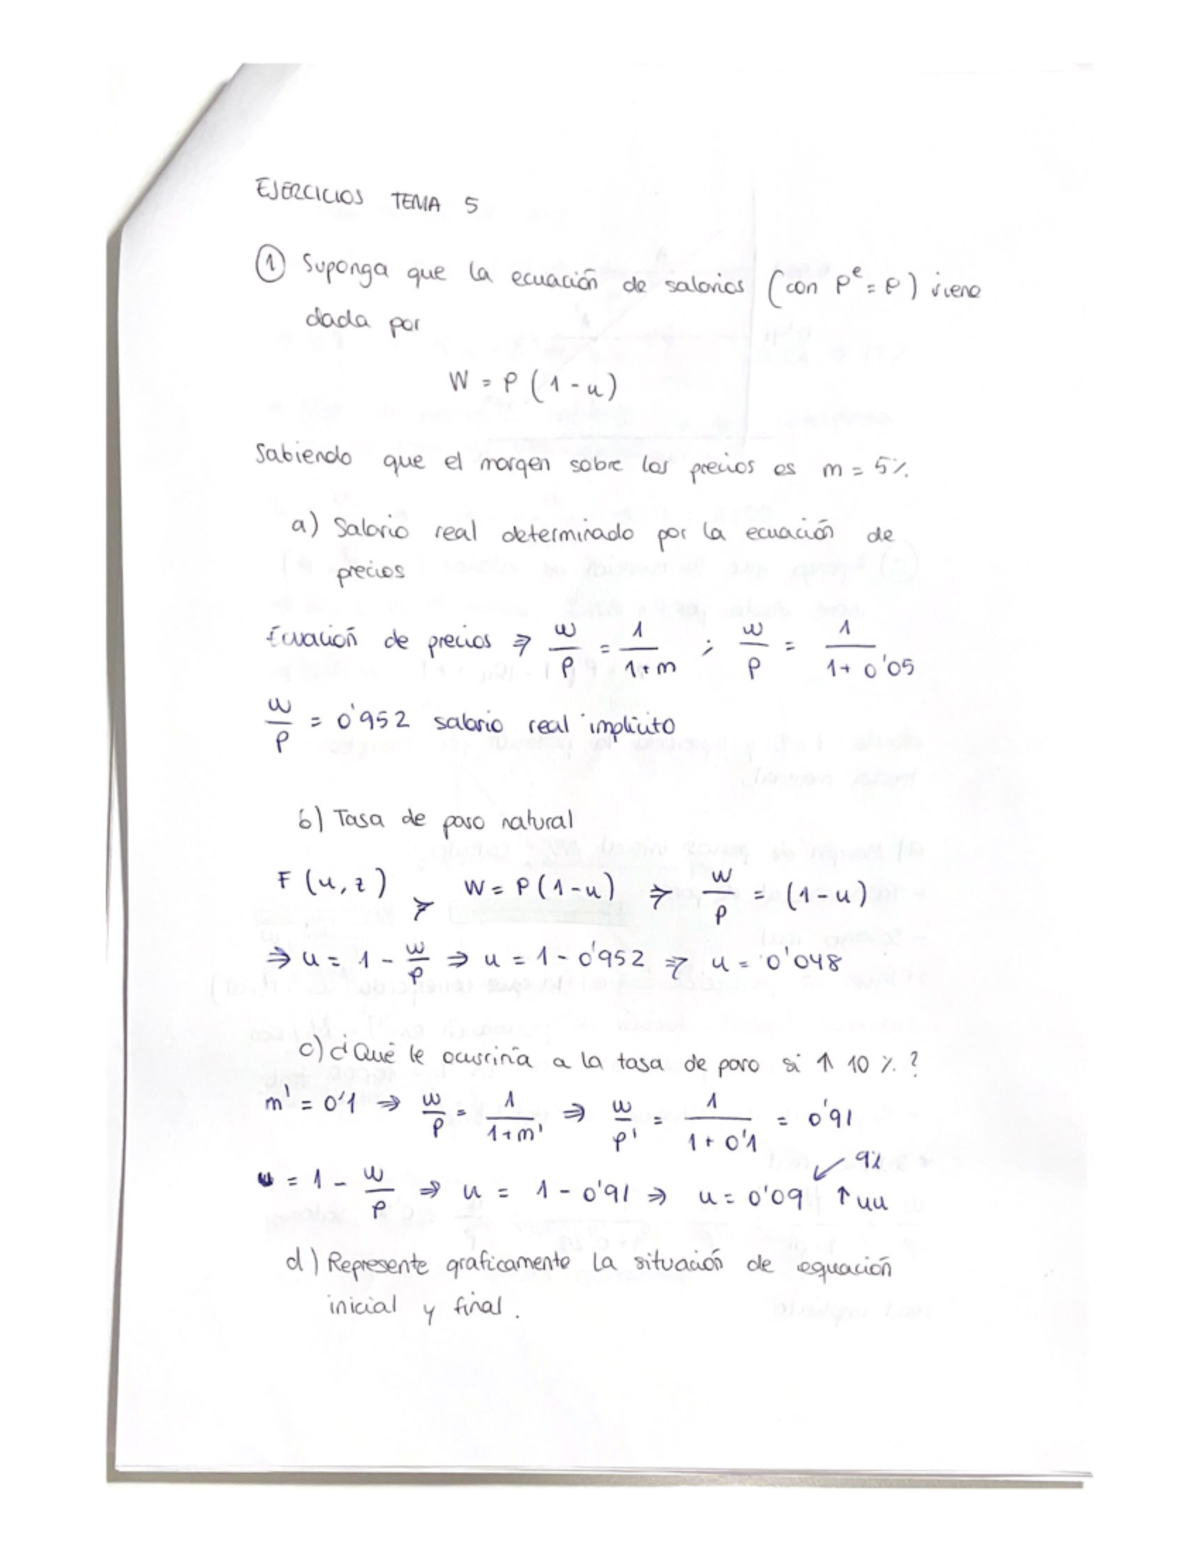 EJERCICIOS TEMA 5
① Suponga que la ecuación de salarios (con Pᵉ = P) viene
dada por
W = P (1 - u)
Sabiendo que el margen sobre los precios es m = 5%
a) Salario real determinado por la ecuación de
precios
Ecuación de precios ⇒ w/P = 1/(1+m) ; w/P = 1/(1+0'05)
w/P = 0'952 salario real implícito
b) Tasa de paro natural
F (u, z) ⇒ W = P (1-u) ⇒ w/P = (1-u)
⇒ u = 1 - w/P ⇒ u = 1 - 0'952 ⇒ u = 0'048
c) ¿Qué le ocurriría a la tasa de paro si ↑ 10 %. ?
m' = 0'1 ⇒ w/P = 1/(1+m') ⇒ w/P' = 1/(1+0'1) = 0'91
9%
u = 1 - w/P ⇒ u = 1 - 0'91 ⇒ u = 0'09 ↑ uu
d) Represente graficamente la situación de equación
inicial y final.